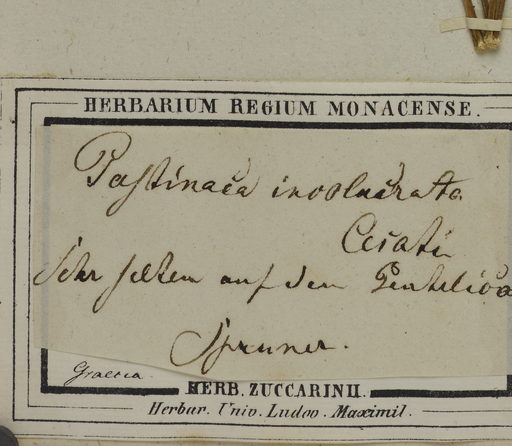 HERBARIUM REGIUM MONACENSE.
Pastinaca involucrata
Cesati
Sehr selten auf dem Pentelicon
Spruner.
Graecia.
HERB. ZUCCARINII.
Herbar. Univ. Ludov. Maximil.